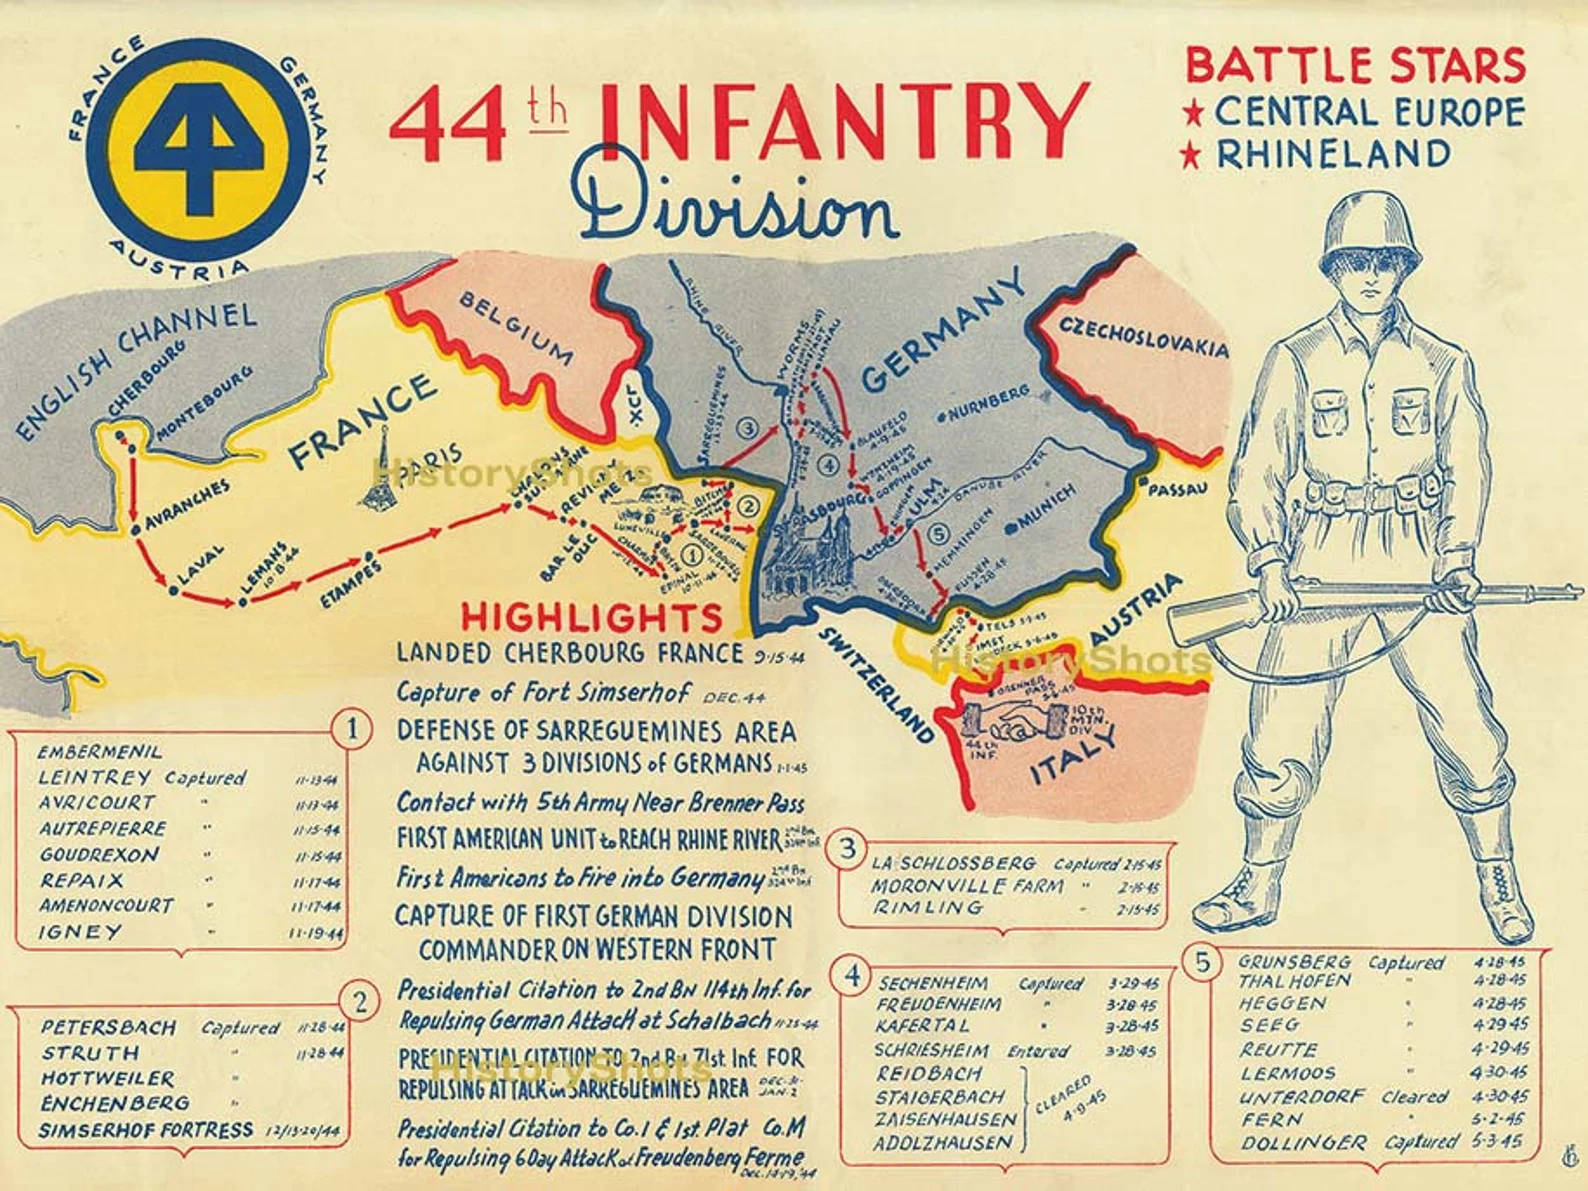 FRANCE
GERMANY
44
AUSTRIA
44th INFANTRY
Division
BATTLE STARS
★ CENTRAL EUROPE
★ RHINELAND
ENGLISH CHANNEL
CHERBOURG
MONTEBOURG
FRANCE
BELGIUM
LUX.
GERMANY
CZECHOSLOVAKIA
RHINE RIVER
WORMS
HANAU
SARREGUEMINES
NURNBERG
BLAUFELD
4-9-45
GOPPINGEN
ULM
DANUBE RIVER
MUNICH
MEMMINGEN
PASSAU
FUSSEN
4-28-45
PARIS
HistoryShots
AVRANCHES
LAVAL
LEMANS
10-8-44
ETAMPES
BAR LE
DUC
REVIGNY
LUNEVILLE
BITCHE
EPINAL
10-11-44
1
2
3
4
5
SWITZERLAND
AUSTRIA
TELS 5-5-45
HistoryShots
BRENNER
PASS
10th
MTN.
DIV.
44th
INF.
ITALY
HIGHLIGHTS
LANDED CHERBOURG FRANCE 9-15-44
Capture of Fort Simserhof DEC. 44
DEFENSE OF SARREGUEMINES AREA
AGAINST 3 DIVISIONS of GERMANS 1-1-45
Contact with 5th Army Near Brenner Pass
FIRST AMERICAN UNIT to REACH RHINE RIVER 2nd Bn 324th Inf.
First Americans to Fire into Germany 2nd Bn 324th Inf
CAPTURE OF FIRST GERMAN DIVISION
COMMANDER ON WESTERN FRONT
Presidential Citation to 2nd BN 114th Inf. for
Repulsing German Attack at Schalbach 11-25-44
PRESIDENTIAL CITATION TO 2nd Bn 71st Inf. FOR
HistoryShots
REPULSING ATTACK in SARREGUEMINES AREA DEC. 31- JAN. 2
Presidential Citation to Co. I & 1st. Plat Co. M
for Repulsing 6 Day Attack at Freudenberg Ferme
DEC. 14-19, '44
1
EMBERMENIL
LEINTREY Captured 11-13-44
AVRICOURT " 11-13-44
AUTREPIERRE " 11-15-44
GOUDREXON " 11-15-44
REPAIX " 11-17-44
AMENONCOURT " 11-17-44
IGNEY " 11-19-44
2
PETERSBACH Captured 11-28-44
STRUTH " 11-28-44
HOTTWEILER "
ENCHENBERG "
SIMSERHOF FORTRESS 12/13-20/44
3
LA SCHLOSSBERG Captured 2-15-45
MORONVILLE FARM " 2-15-45
RIMLING " 2-15-45
4
SECHENHEIM Captured 3-29-45
FREUDENHEIM " 3-28-45
KAFERTAL " 3-28-45
SCHRIESHEIM Entered 3-28-45
REIDBACH
STAIGERBACH
ZAISENHAUSEN
ADOLZHAUSEN
CLEARED
4-9-45
5
GRUNSBERG Captured 4-28-45
THALHOFEN " 4-28-45
HEGGEN " 4-28-45
SEEG " 4-29-45
REUTTE " 4-29-45
LERMOOS " 4-30-45
UNTERDORF Cleared 4-30-45
FERN " 5-2-45
DOLLINGER Captured 5-3-45